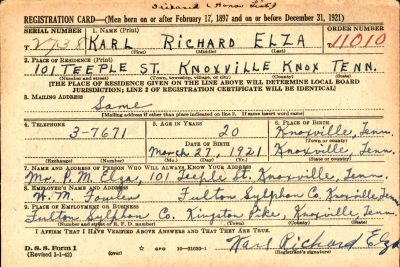 Diseased (Honor List)
REGISTRATION CARD—(Men born on or after February 17, 1897 and on or before December 31, 1921)
SERIAL NUMBER 1. NAME (Print) ORDER NUMBER
KARL RICHARD ELZA 11010
(First) (Middle) (Last)
2. PLACE OF RESIDENCE (Print)
101 TEEPLE ST. KNOXVILLE KNOX TENN.
(Number and street) (Town, township, village, or city) (County) (State)
[THE PLACE OF RESIDENCE GIVEN ON THE LINE ABOVE WILL DETERMINE LOCAL BOARD
JURISDICTION; LINE 2 OF REGISTRATION CERTIFICATE WILL BE IDENTICAL]
3. MAILING ADDRESS
Same
[Mailing address if other than place indicated on line 2. If same insert word same]
4. TELEPHONE 5. AGE IN YEARS 6. PLACE OF BIRTH
3-7671 20 Knoxville, Tenn.
DATE OF BIRTH (Town or county)
March 27, 1921 Knoxville, Tenn.
(Exchange) (Number) (Mo.) (Day) (Yr.) (State or country)
7. NAME AND ADDRESS OF PERSON WHO WILL ALWAYS KNOW YOUR ADDRESS
Mr. P. M. Elza, 101 Teeple St. Knoxville, Tenn.
8. EMPLOYER'S NAME AND ADDRESS
W. M. Fowler Fulton Sylphon Co. Knoxville, Tenn.
9. PLACE OF EMPLOYMENT OR BUSINESS
Fulton Sylphon Co. Kingston Pike, Knoxville, Tenn.
(Number and street or R. F. D. number) (Town) (County) (State)
I AFFIRM THAT I HAVE VERIFIED ABOVE ANSWERS AND THAT THEY ARE TRUE.
D. S. S. Form 1
(Revised 1-1-42) GPO 16—21630-1 Karl Richard Elza
(Registrant's signature)